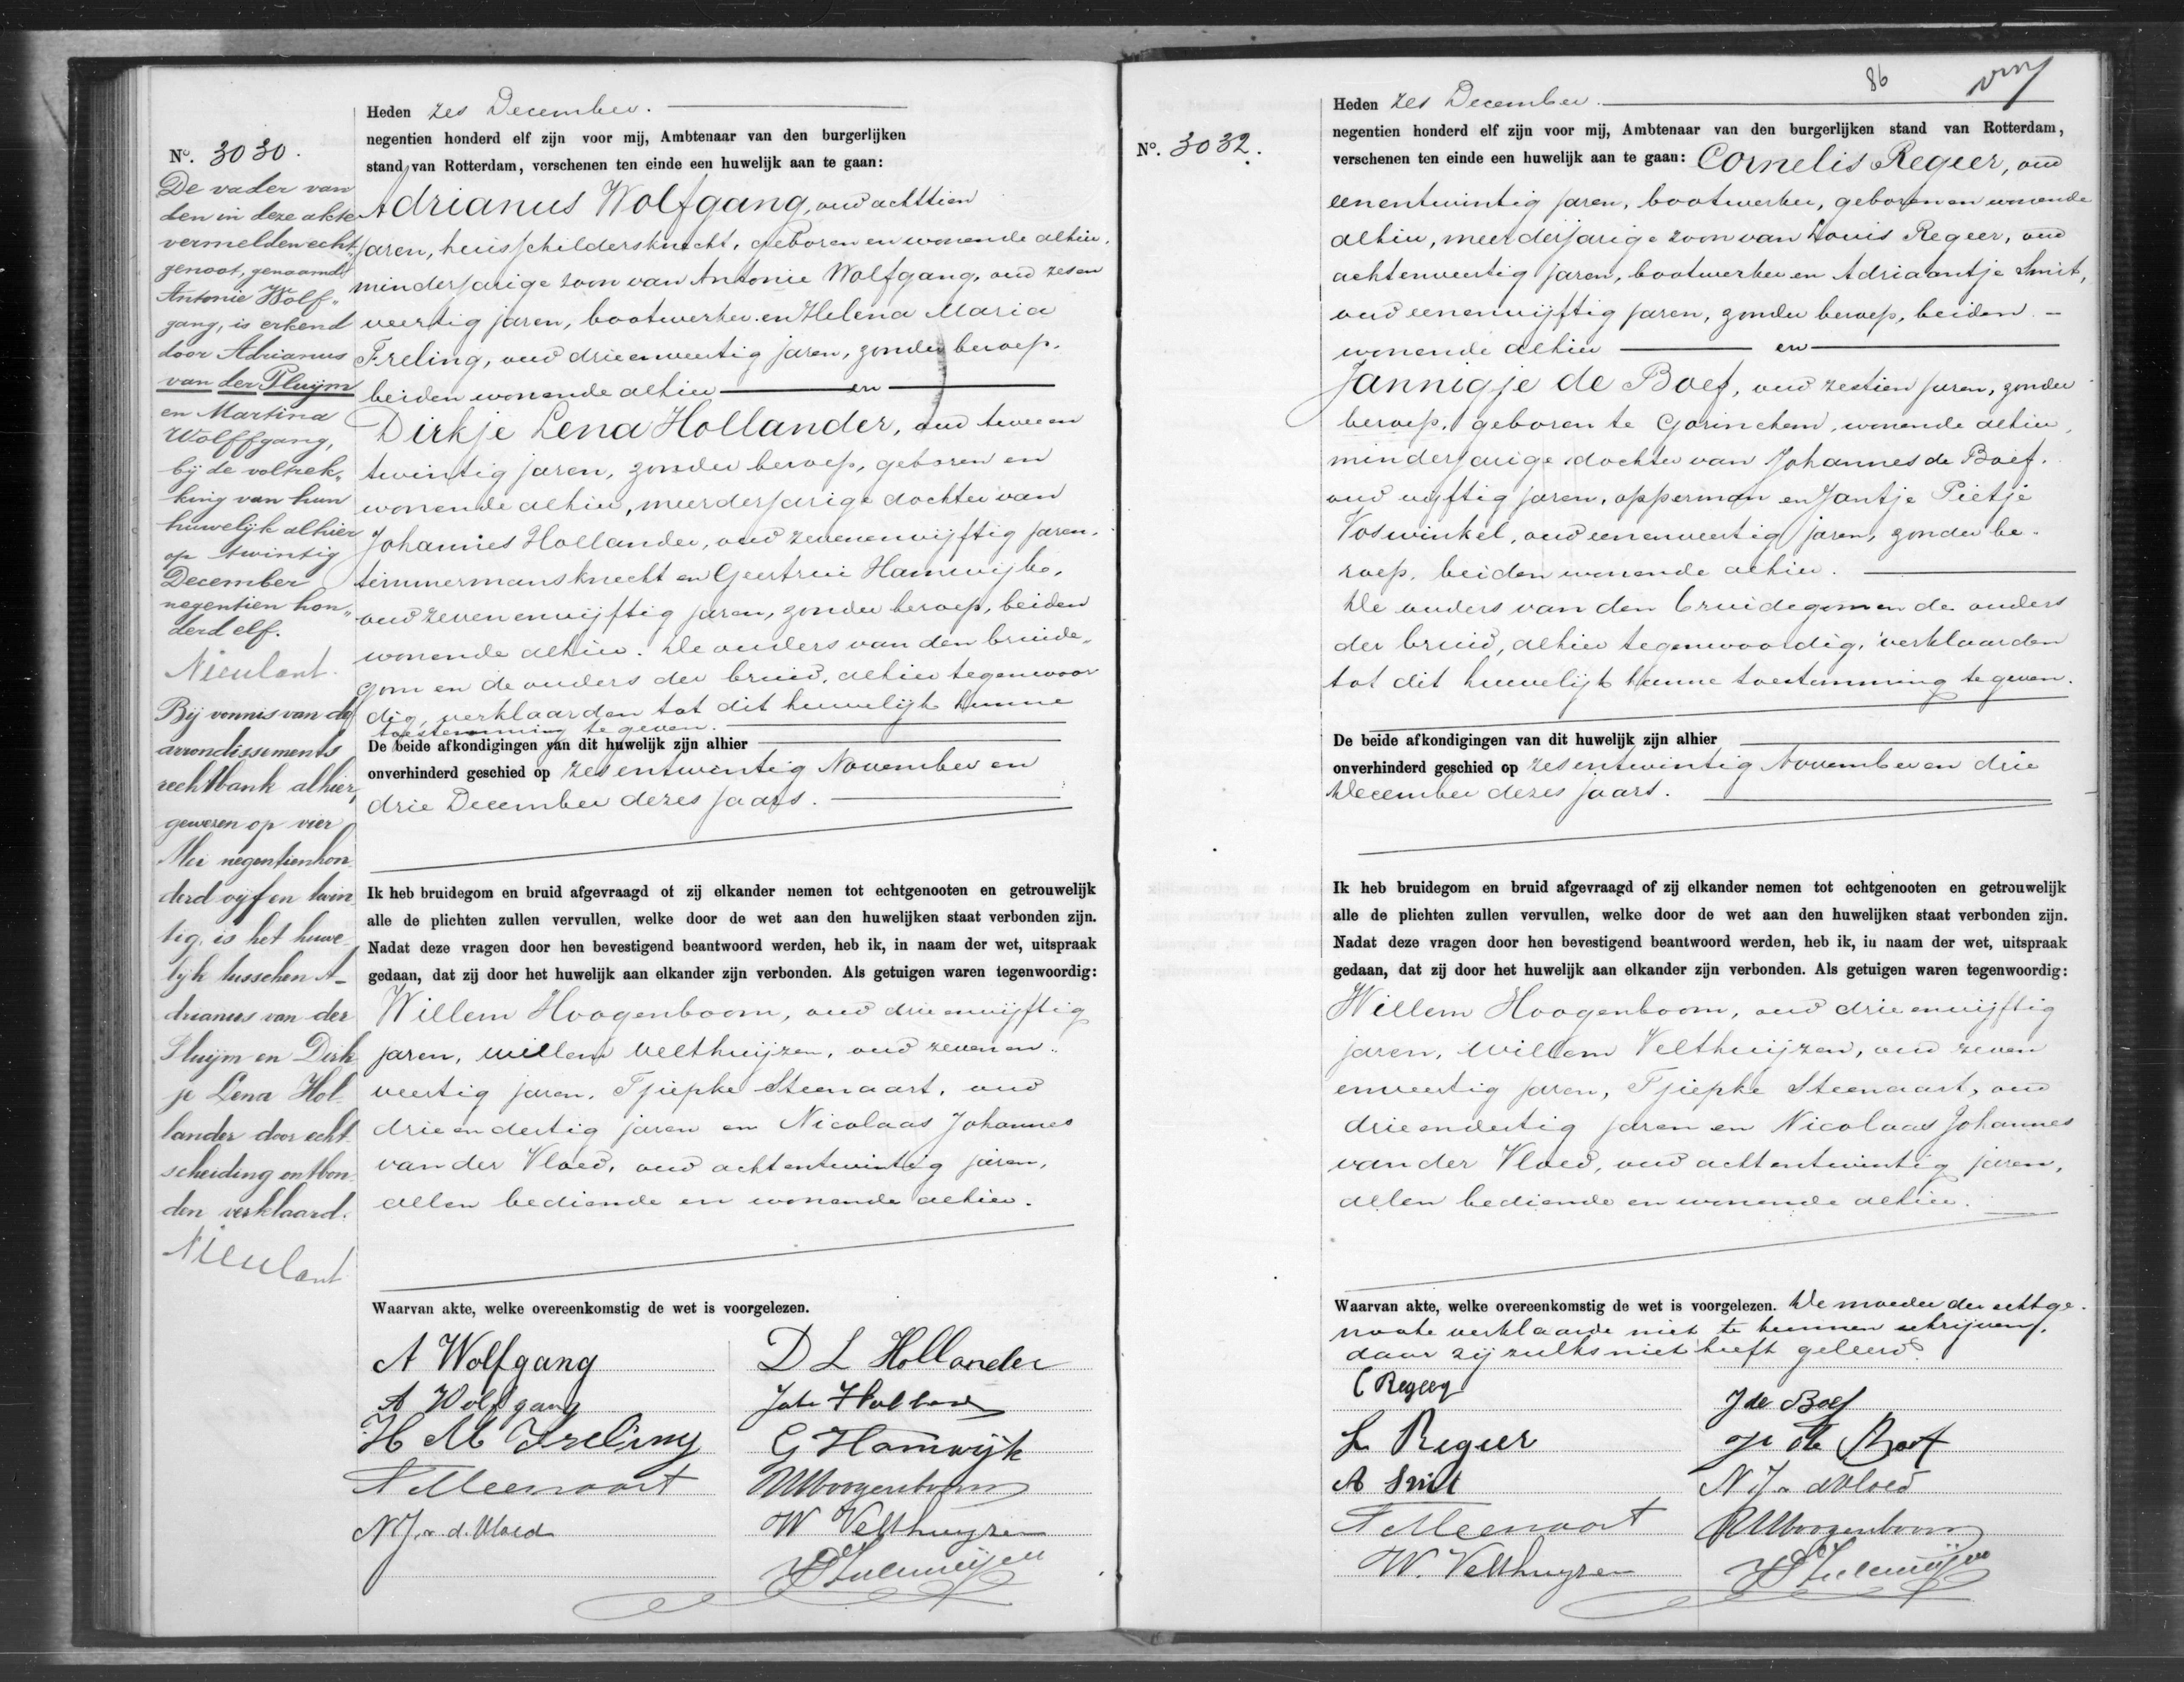 Nº. 3030.
De vader van
den in deze akte
vermelden echt„
genoot, genaamd
Antonie Wolf„
gang, is erkend
door Adrianus
van der Pluijm
en Martina
Wolffgang,
bij de voltrek„
king van hun
huwelijk alhier
op twintig
December
negentien hon„
derd elf.
Nieulant.
Bij vonnis van de
arrondissements
rechtbank alhier,
gewezen op vier
Mei negentienhon
derd vijf en twin
tig, is het huwe
lijk tusschen A-
drianus van der
Pluijm en Dirk
je Lena Hol
lander door echt
scheiding ontbon
den verklaard.
Nieulant
Heden zes December.
negentien honderd elf zijn voor mij, Ambtenaar van den burgerlijken
stand van Rotterdam, verschenen ten einde een huwelijk aan te gaan:
Adrianus Wolfgang, oud achttien
jaren, huisschildersknecht, geboren en wonende alhier,
minderjarige zoon van Antonie Wolfgang, oud zesen
veertig jaren, bootwerker en Helena Maria
Freling, oud drieenveertig jaren, zonder beroep,
beiden wonende alhier en
Dirkje Lena Hollander, oud tweeen
twintig jaren, zonder beroep, geboren en
wonende alhier, meerderjarige dochter van
Johannes Hollander, oud zevenenvijftig jaren,
timmermansknecht en Geertrui Hamwijk,
oud zevenenvijftig jaren, zonder beroep, beiden
wonende alhier. De ouders van den bruide„
gom en de ouders der bruid, alhier tegenwoor
dig, verklaarden tot dit huwelijk hunne
toestemming te geven.
De beide afkondigingen van dit huwelijk zijn alhier
onverhinderd geschied op zesentwintig November en
drie December dezes jaars.
Ik heb bruidegom en bruid afgevraagd of zij elkander nemen tot echtgenooten en getrouwelijk
alle de plichten zullen vervullen, welke door de wet aan den huwelijken staat verbonden zijn.
Nadat deze vragen door hen bevestigend beantwoord werden, heb ik, in naam der wet, uitspraak
gedaan, dat zij door het huwelijk aan elkander zijn verbonden. Als getuigen waren tegenwoordig:
Willem Hoogenboom, oud drieenvijftig
jaren, Willem Velthuijzen, oud zevenen„
veertig jaren, Tjiepke Steenaart, oud
drieendertig jaren en Nicolaas Johannes
van der Vloed, oud achtentwintig jaren,
allen bediende en wonende alhier.
Waarvan akte, welke overeenkomstig de wet is voorgelezen.
A Wolfgang
D L Hollander
A Wolfgang
H M Freling
G Hamwijk
N J v. d. Vloed
W Velthuyzen
86
Nº. 3032.
Heden zes December.
negentien honderd elf zijn voor mij, Ambtenaar van den burgerlijken stand van Rotterdam,
verschenen ten einde een huwelijk aan te gaan: Cornelis Regeer, oud
eenentwintig jaren, bootwerker, geboren en wonende
alhier, meerderjarige zoon van Louis Regeer, oud
achtenveertig jaren, bootwerker en Adriaantje Smit,
oud eenenvijftig jaren, zonder beroep, beiden
wonende alhier en
Jannigje de Boef, oud zestien jaren, zonder
beroep, geboren te Gorinchem, wonende alhier,
minderjarige dochter van Johannes de Boef,
oud vijftig jaren, opperman en Jantje Pietje
Voswinkel, oud eenenveertig jaren, zonder be„
roep, beiden wonende alhier.
De ouders van den bruidegom en de ouders
der bruid, alhier tegenwoordig, verklaarden
tot dit huwelijk hunne toestemming te geven.
De beide afkondigingen van dit huwelijk zijn alhier
onverhinderd geschied op zesentwintig November en drie
December dezes jaars.
Ik heb bruidegom en bruid afgevraagd of zij elkander nemen tot echtgenooten en getrouwelijk
alle de plichten zullen vervullen, welke door de wet aan den huwelijken staat verbonden zijn.
Nadat deze vragen door hen bevestigend beantwoord werden, heb ik, in naam der wet, uitspraak
gedaan, dat zij door het huwelijk aan elkander zijn verbonden. Als getuigen waren tegenwoordig:
Willem Hoogenboom, oud drieenvijftig
jaren, Willem Velthuijzen, oud zeven
enveertig jaren, Tjiepke Steenaart, oud
drieendertig jaren en Nicolaas Johannes
van der Vloed, oud achtentwintig jaren,
allen bediende en wonende alhier.
Waarvan akte, welke overeenkomstig de wet is voorgelezen. De moeder der echtge„
noote verklaarde niet te kunnen schrijven,
daar zij zulks niet heeft geleerd.
C Regeer
J de Boef
L Regeer
A Smit
N J v d Vloed
W. Velthuyzen